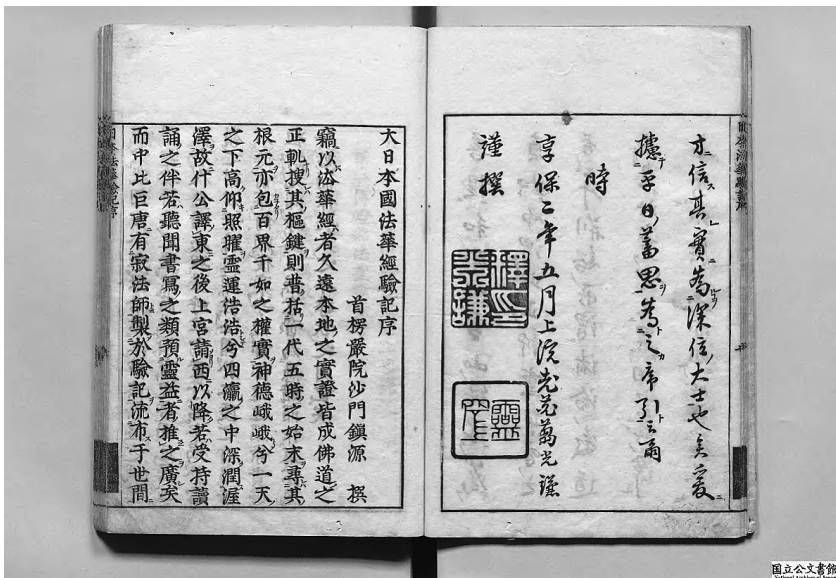 才信其實為深信大士也矣爰
據平日蓄思為之序引云爾
時
享保二年五月上浣
謹撰
釋氏光謙
靈空
大日本國法華經驗記序
首楞嚴院沙門鎮源 撰
竊以法華經者久遠本地之實證皆成佛道之
正軌搜其樞鍵則普括一代五時之始末尋其
根元亦包百界千如之權實神德峨峨兮一天
之下高仰照曜靈運浩浩兮四瀛之中深潤渥
澤故什公譯東之後上宮請西以降若受持讀
誦之伴若聽聞書寫之類預靈益者推之廣矣
而中比巨唐有寂法師製於驗記流布于世間
日本法華驗記序
国立公文書館